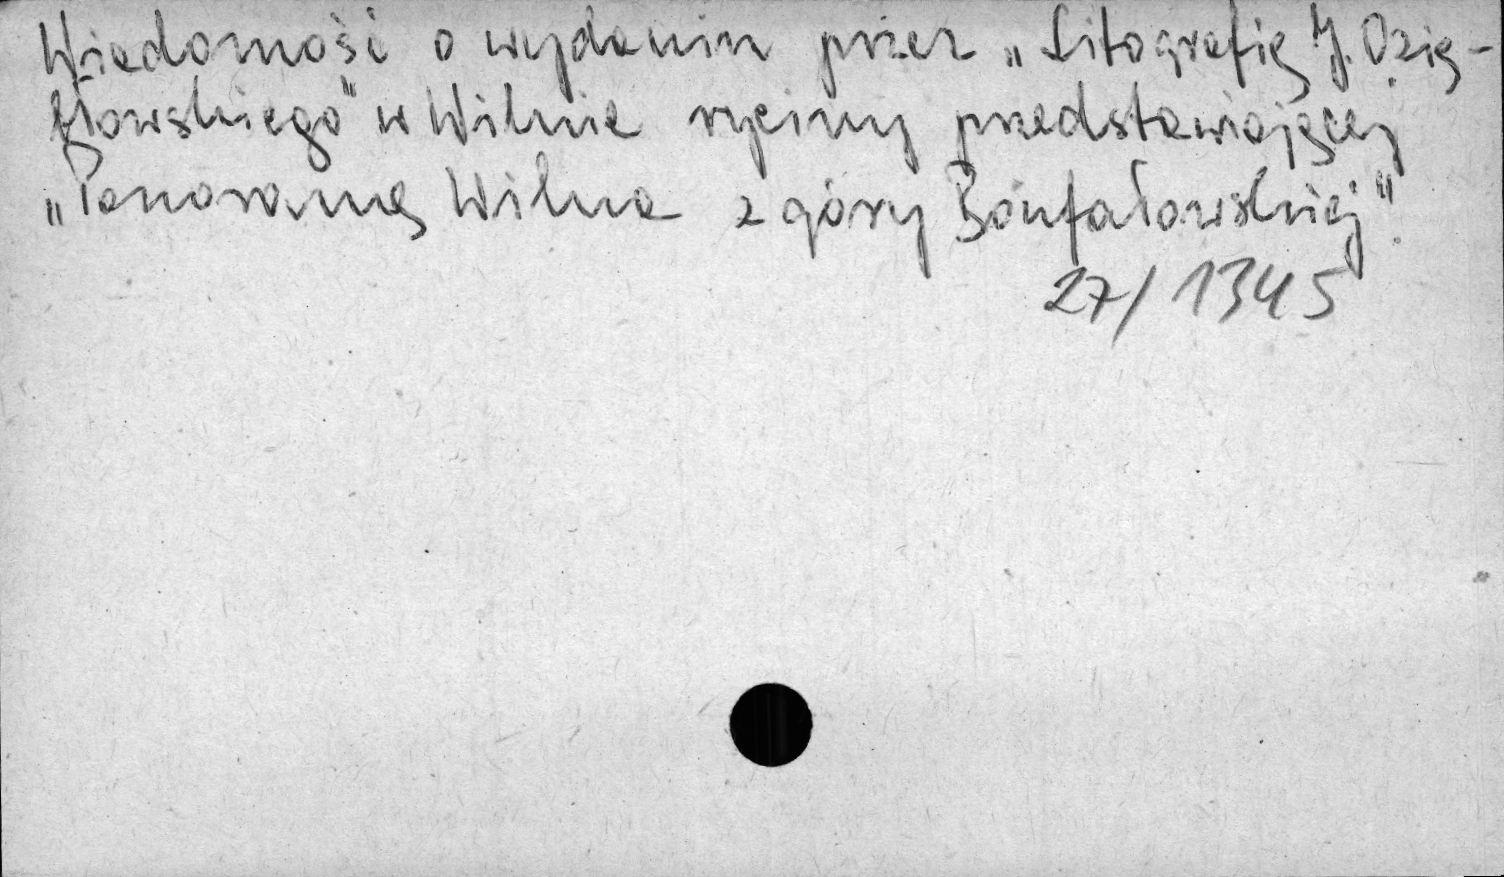 Wiadomość o wydaniu przez „Litografię J. Ozię-
błowskiego" w Wilnie ryciny przedstawiającej
„Panoramę Wilna z góry Bonfałowskiej".
27/1345